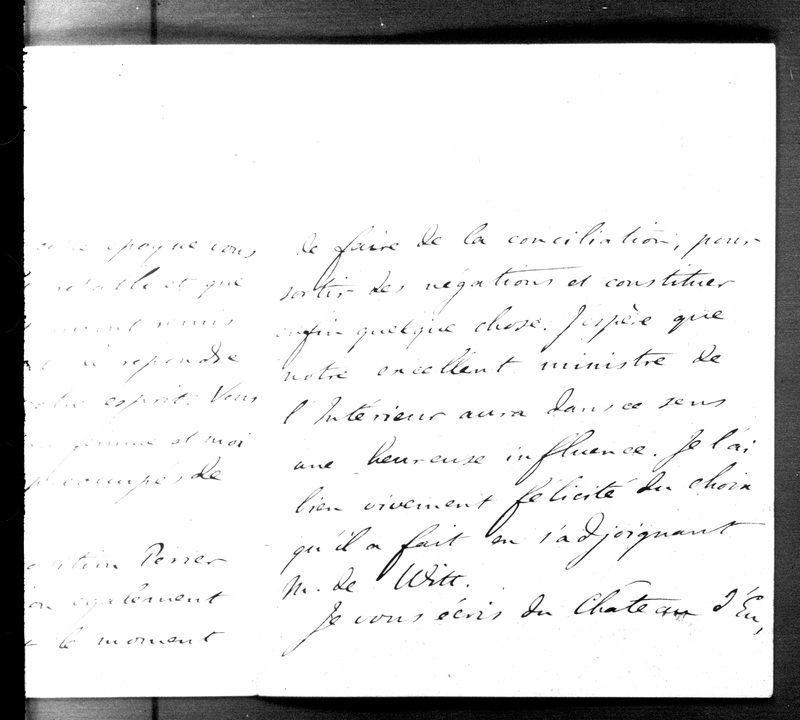 époque vous
et que
réunis
répondre
votre esprit. Vous
femme et moi
occupés de
Perier
également
le moment
de faire de la conciliation, pour
sortir des négations et constituer
enfin quelque chose. J'espère que
notre excellent ministre de
l'Intérieur aura dans ce sens
une heureuse influence. Je l'ai
bien vivement félicité du choix
qu'il a fait en s'adjoignant
M. de Witt.
Je vous écris du Château d'Eu,